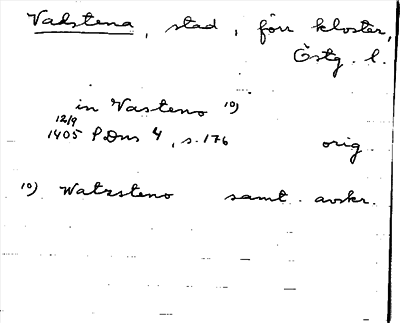 Vadstena, stad, förr kloster,
Östg. l.
in Vasteno 10)
12/9
1405 P.Dns 4, s. 176 orig.
10) Watzsteno samt. avskr.